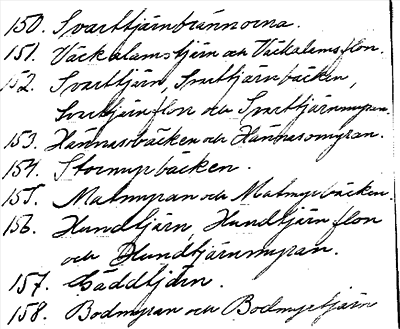 150. Svarttjärnbrännorna.
151. Väckalamstjärn och Väckalamsflon.
152. Svarttjärn, Svarttjärnbäcken,
Svarttjärnflon och Svarttjärnmyran.
153. Hännäsbäcken och Hännäsomyran.
154. Stormyrbäcken.
155. Matmyran och Matmyrbäcken.
156. Hundtjärn, Hundtjärnflon
och Hundtjärnmyran.
157. Gäddtjärn.
158. Bodmyran och Bodmyrtjärn